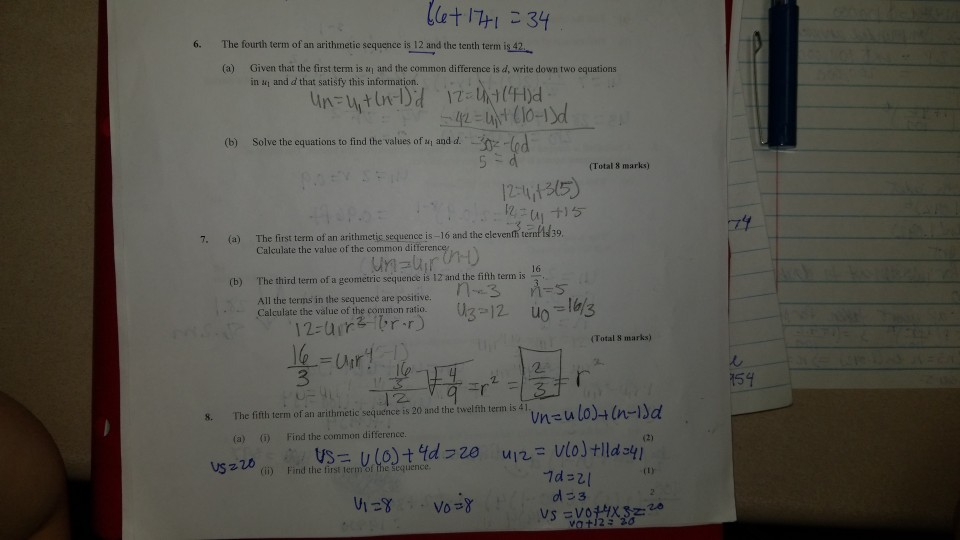 66+17+1 = 34
6. The fourth term of an arithmetic sequence is 12 and the tenth term is 42.
(a) Given that the first term is u1 and the common difference is d, write down two equations
in u1 and d that satisfy this information.
un=u1+(n-1)d 12=u1+(4-1)d
-42=u1+(10-1)d
(b) Solve the equations to find the values of u1 and d. -30=-6d
5=d
(Total 8 marks)
12=u1+3(5)
12=u1+15
7. (a) The first term of an arithmetic sequence is –16 and the eleventh term is 39.
Calculate the value of the common difference.
un=u1r(n-1)
(b) The third term of a geometric sequence is 12 and the fifth term is 16/3.
n=3 n=5
All the terms in the sequence are positive.
Calculate the value of the common ratio. u3=12 u0=16/3
12=u1r2 (r·r)
(Total 8 marks)
16/3=u1r4
16/3 / 12 √4/9=r2= 2/3=r2
8. The fifth term of an arithmetic sequence is 20 and the twelfth term is 41.
Un=u(0)+(n-1)d
(a) (i) Find the common difference. (2)
U5=20 U5=U(0)+4d=20 U12=U(0)+11d=41
(ii) Find the first term of the sequence. (1)
7d=21
d=3
U1=8 U0=8
U5=U0+4x3=20
U0+12=20
74
754